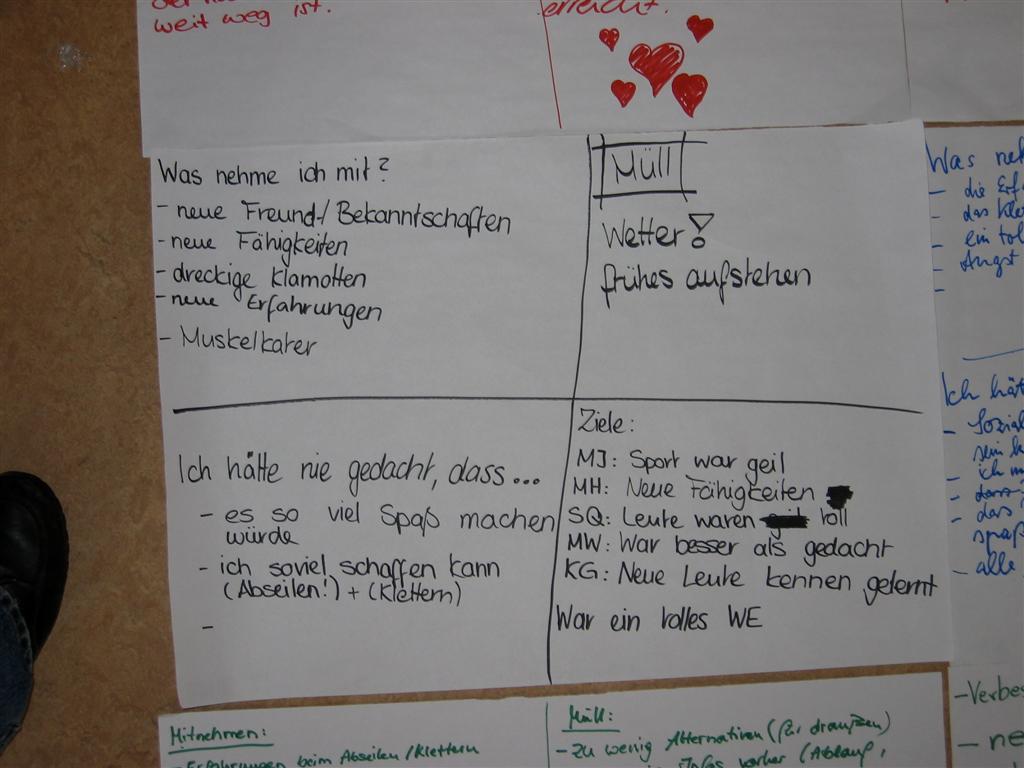 weit weg ist.
erreicht.
Was nehme ich mit?
- neue Freund-/Bekanntschaften
- neue Fähigkeiten
- dreckige Klamotten
- neue Erfahrungen
- Muskelkater
Müll
Wetter!
frühes aufstehen
Ich hätte nie gedacht, dass...
- es so viel Spaß machen
würde
- ich soviel schaffen kann
(Abseilen!) + (Klettern)
-
Ziele:
MJ: Sport war geil
MH: Neue Fähigkeiten
SQ: Leute waren toll
MW: War besser als gedacht
KG: Neue Leute kennen gelernt
War ein tolles WE
Was neh
- die Erf
- das Kle
- ein tol
- Angst
-
Ich hät
- Sozial
- ich
- das
spaß
- alle
Mitnehmen:
- Erfahrungen beim Abseilen/Klettern
Müll:
- zu wenig Alternativen (für draußen)
Infos vorher (Ablauf,
- Verbes
- ne